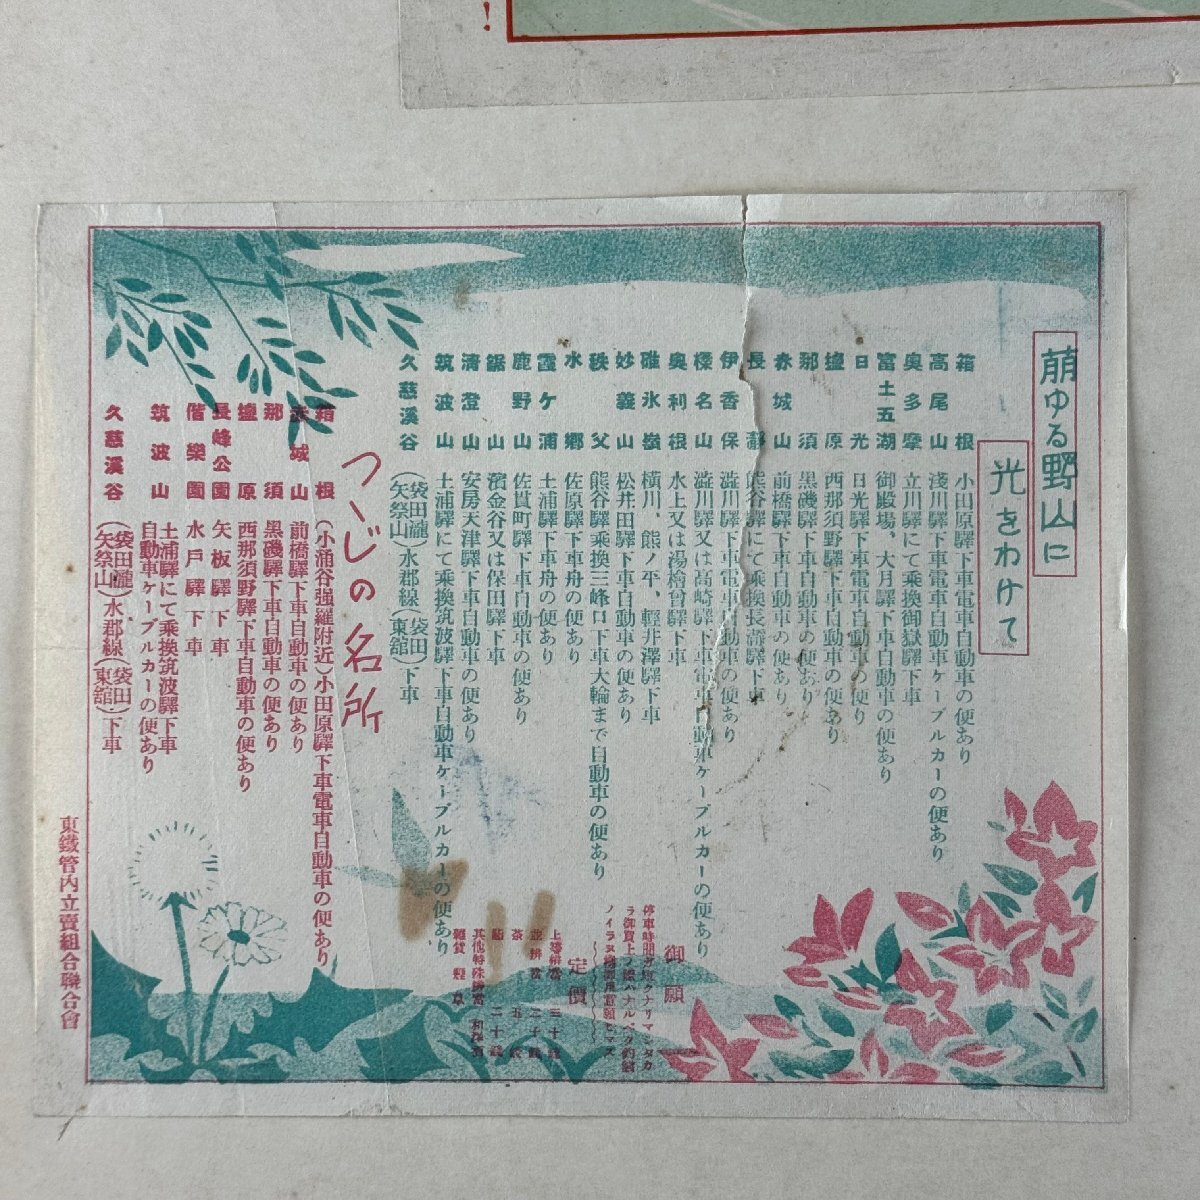 萠ゆる野山に
光をわけて
箱根 小田原驛下車電車自動車の便あり
高尾山 淺川驛下車電車自動車ケーブルカーの便あり
奥多摩 立川驛にて乘換御嶽驛下車
富士五湖 御殿場、大月驛下車自動車の便あり
日光 日光驛下車電車自動車の便あり
塩原 西那須野驛下車自動車の便あり
那須 黒磯驛下車自動車の便あり
赤城山 前橋驛下車自動車の便あり
長瀞 熊谷驛にて乘換長瀞驛下車
伊香保 澁川驛下車電車自動車の便あり
榛名山 澁川驛又は高崎驛下車電車自動車ケーブルカーの便あり
奥利根 水上又は湯檜曾驛下車
碓氷嶺 横川、熊ノ平、輕井澤驛下車
妙義山 松井田驛下車自動車の便あり
秩父 熊谷驛乘換三峰口下車大輪まで自動車の便あり
水郷 佐原驛下車舟の便あり
霞ケ浦 土浦驛下車舟の便あり
鹿野山 佐貫町驛下車自動車の便あり
鋸山 濱金谷又は保田驛下車
清澄山 安房天津驛下車自動車の便あり
筑波山 土浦驛にて乘換筑波驛下車自動車ケーブルカーの便あり
久慈溪谷 (袋田瀧 矢祭山)水郡線(袋田 東舘)下車
つゝじの名所
箱根 (小涌谷强羅附近)小田原驛下車電車自動車の便あり
赤城山 前橋驛下車自動車の便あり
那須 黒磯驛下車自動車の便あり
塩原 西那須野驛下車自動車の便あり
長峰公園 矢板驛下車
偕樂園 水戸驛下車
筑波山 土浦驛にて乘換筑波驛下車
自動車ケーブルカーの便あり
久慈溪谷 (袋田瀧 矢祭山)水郡線(袋田 東舘)下車
御願
定價
上等辨當 三十錢
並辨當 二十錢
茶 五錢
鮨 二十錢
東鐵管内立賣組合聯合會
!